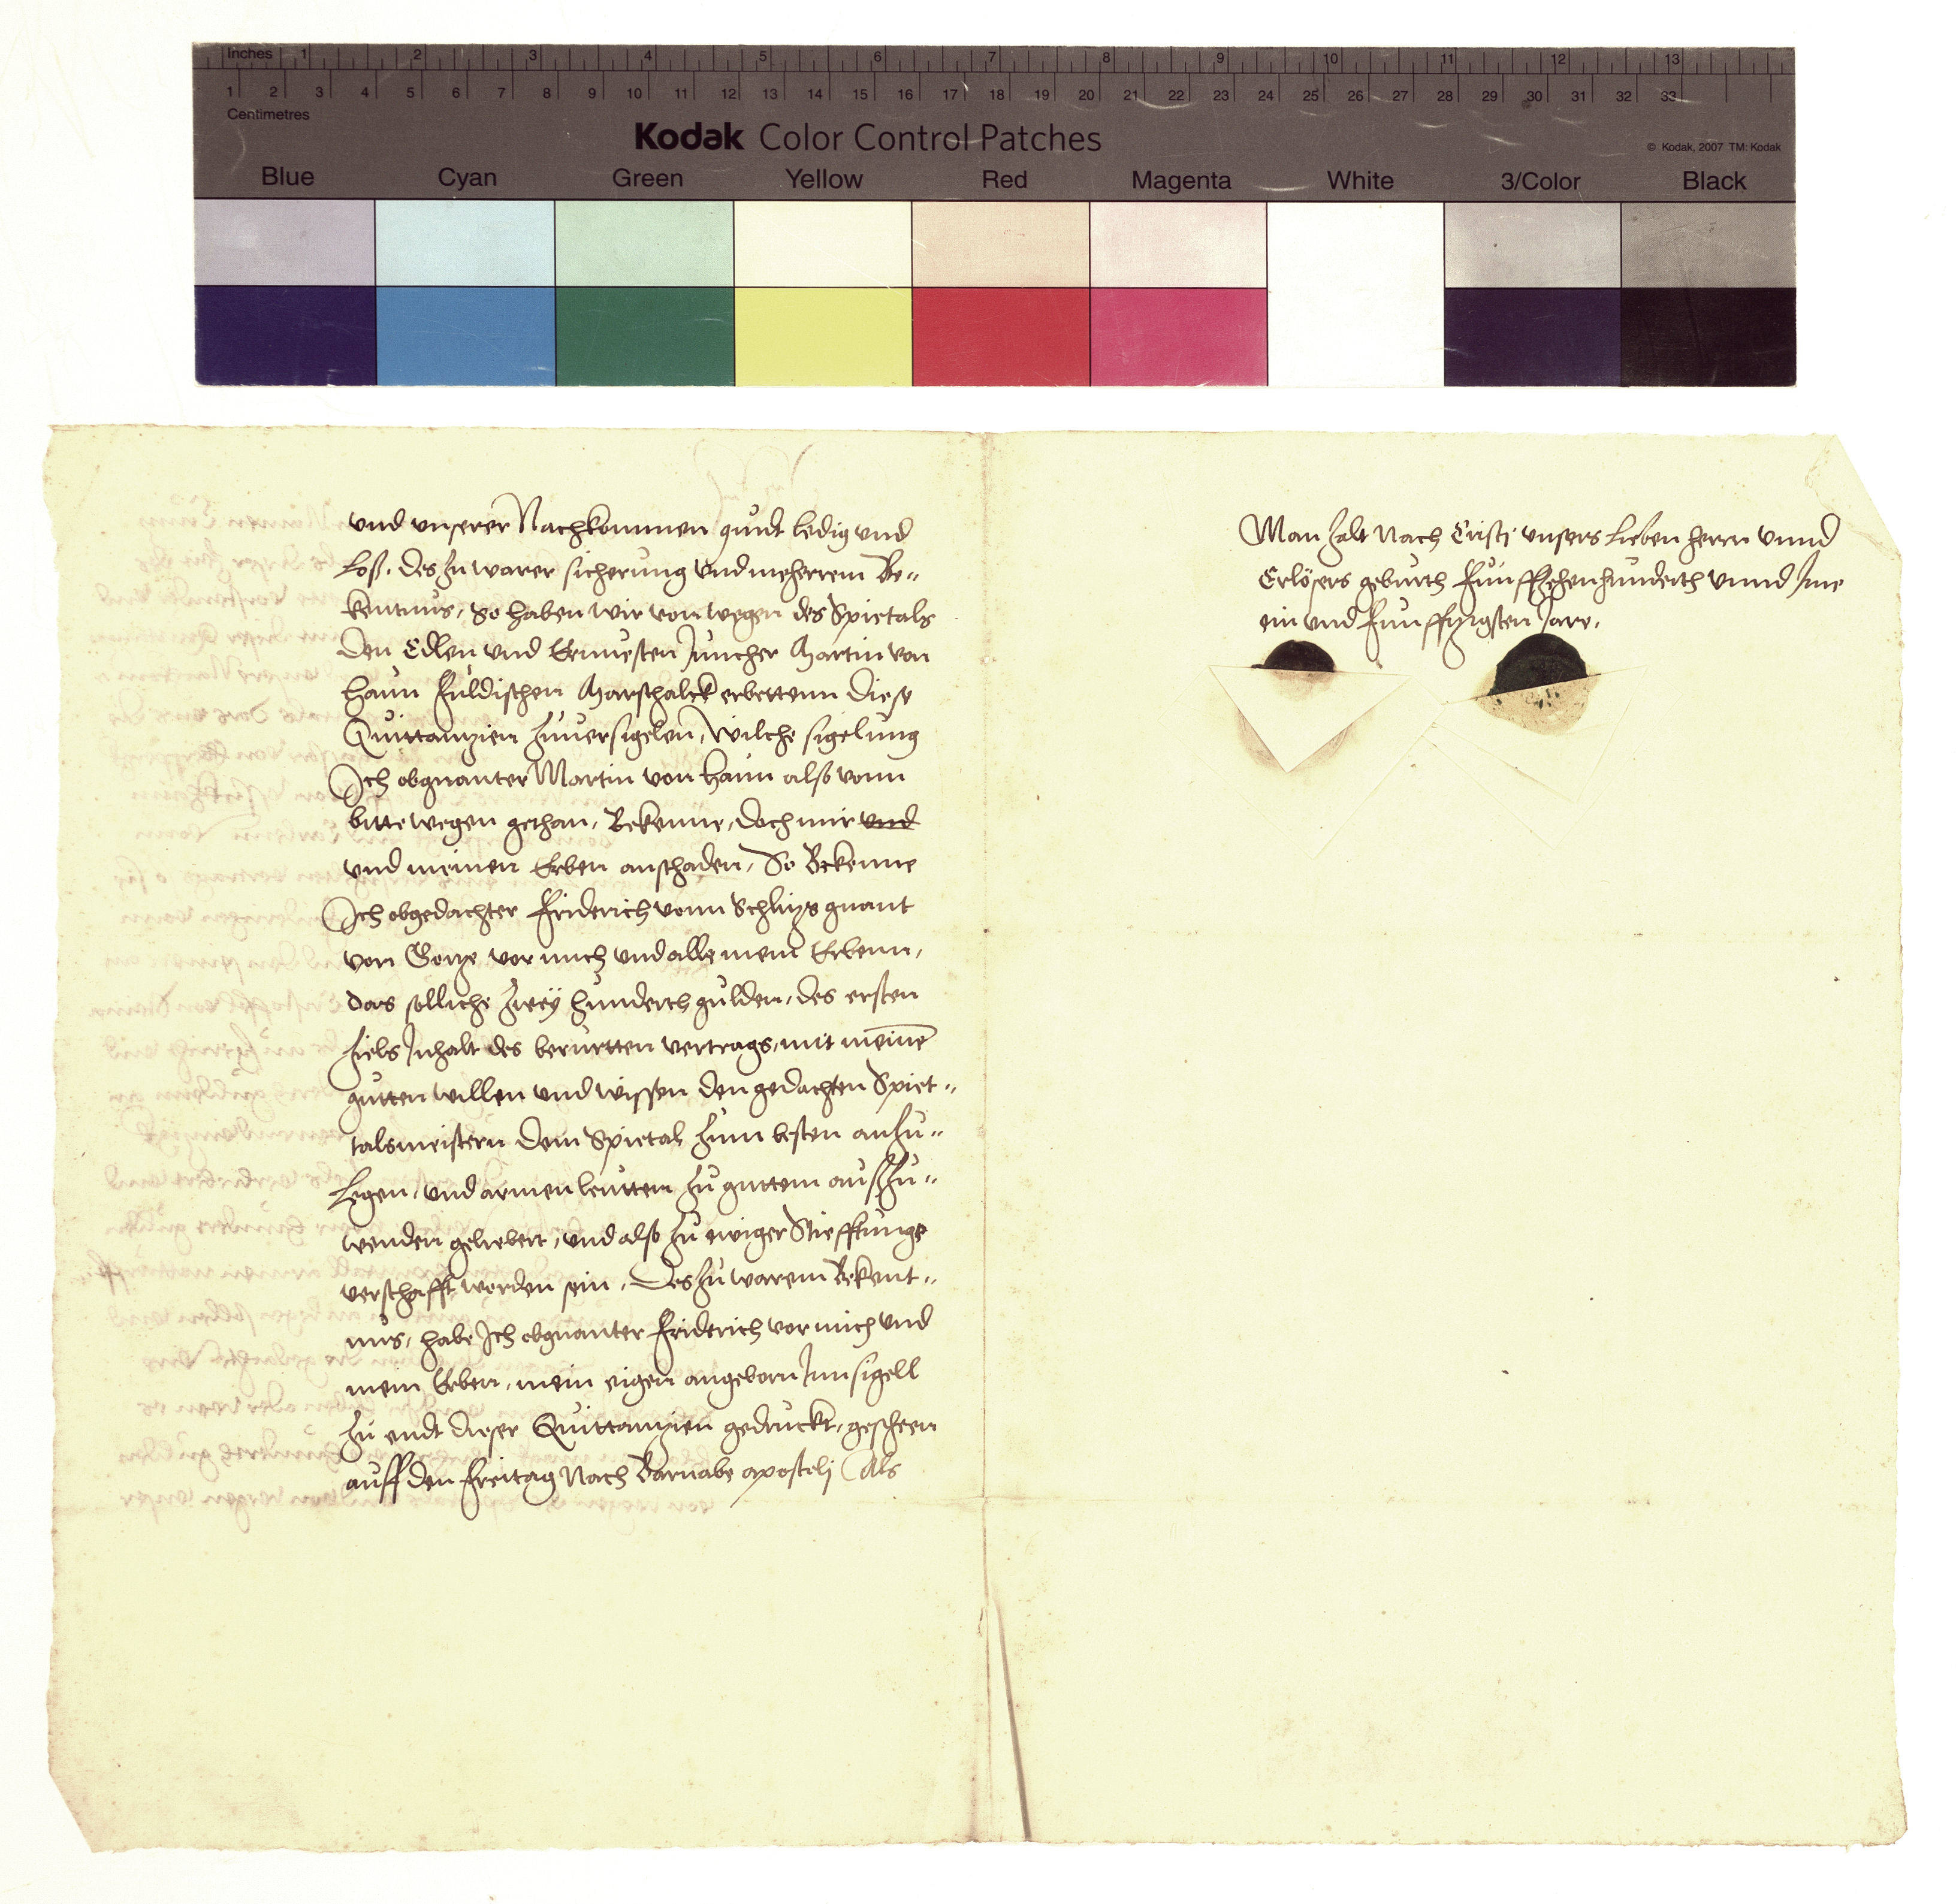 Inches 1 2 3 4 5 6 7 8 9 10 11 12 13
1 2 3 4 5 6 7 8 9 10 11 12 13 14 15 16 17 18 19 20 21 22 23 24 25 26 27 28 29 30 31 32 33
Centimetres
Kodak Color Control Patches
© Kodak, 2007 TM: Kodak
Blue Cyan Green Yellow Red Magenta White 3/Color Black
und unserer Nachkommen quidt ledig und
loß. des zu warer sicherung und meherrem Be-
kentnus, so haben wir von wegen des Spietals
den Edlen und Ernuesten Juncher Martin von
Haun Fuldischen Marschalck erbettenn diese
Quittanzien zuuersigelen, Wilche sigelung
Ich obgnanter Martin von Haun also vonn
bitte wegen gethan, Bekenne, doch mir und
und meinen Erben anschaden, So Bekenne
Ich obgedachter Friderich vonn Schlitzs gnant
von Gortze vor mich und alle mein Erbenn,
das solliche zweÿ hunderth gulden, des ersten
ziels Inhalt des berurtten vertrags, mit meine
gutten willen und wissen den gedachten Spiet-
talsmeistern dem Spietal zum besten anzu-
legen, und armen leutten zu guttem außzu-
wenden geliebert, und also zu ewiger Stiefftunge
verschafft worden sein, Des zu warem Bekent-
nus, habe Ich obgnanter Friderich vor mich und
mein Erben, mein eigen angeborn Innsigell
zu endt dieser Quittanzien gedruckt, gescheen
auff den Freitag Nach Barnabe apostolj Als
Man zalt Nach Cristj unsers lieben herrn vnnd
Erlösers geburth Funffzehenhunderth vnnd Jme
ein und Funffzigsten Jare.